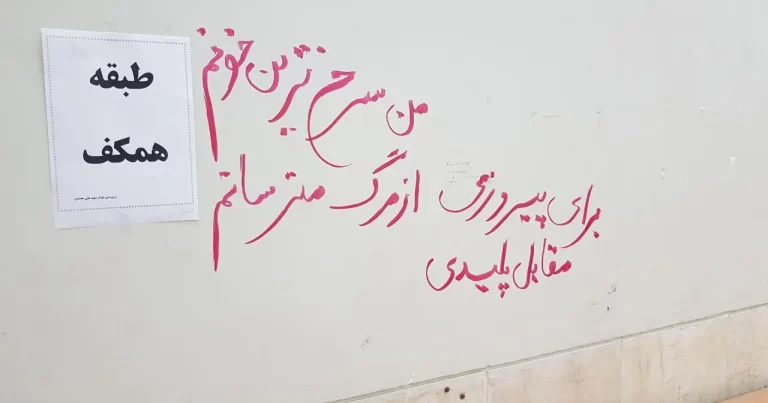 طبقه
همکف
من سرخ ترین خونم
از مرگ مترسانم
برای پیروزی
مقابل پلیدی